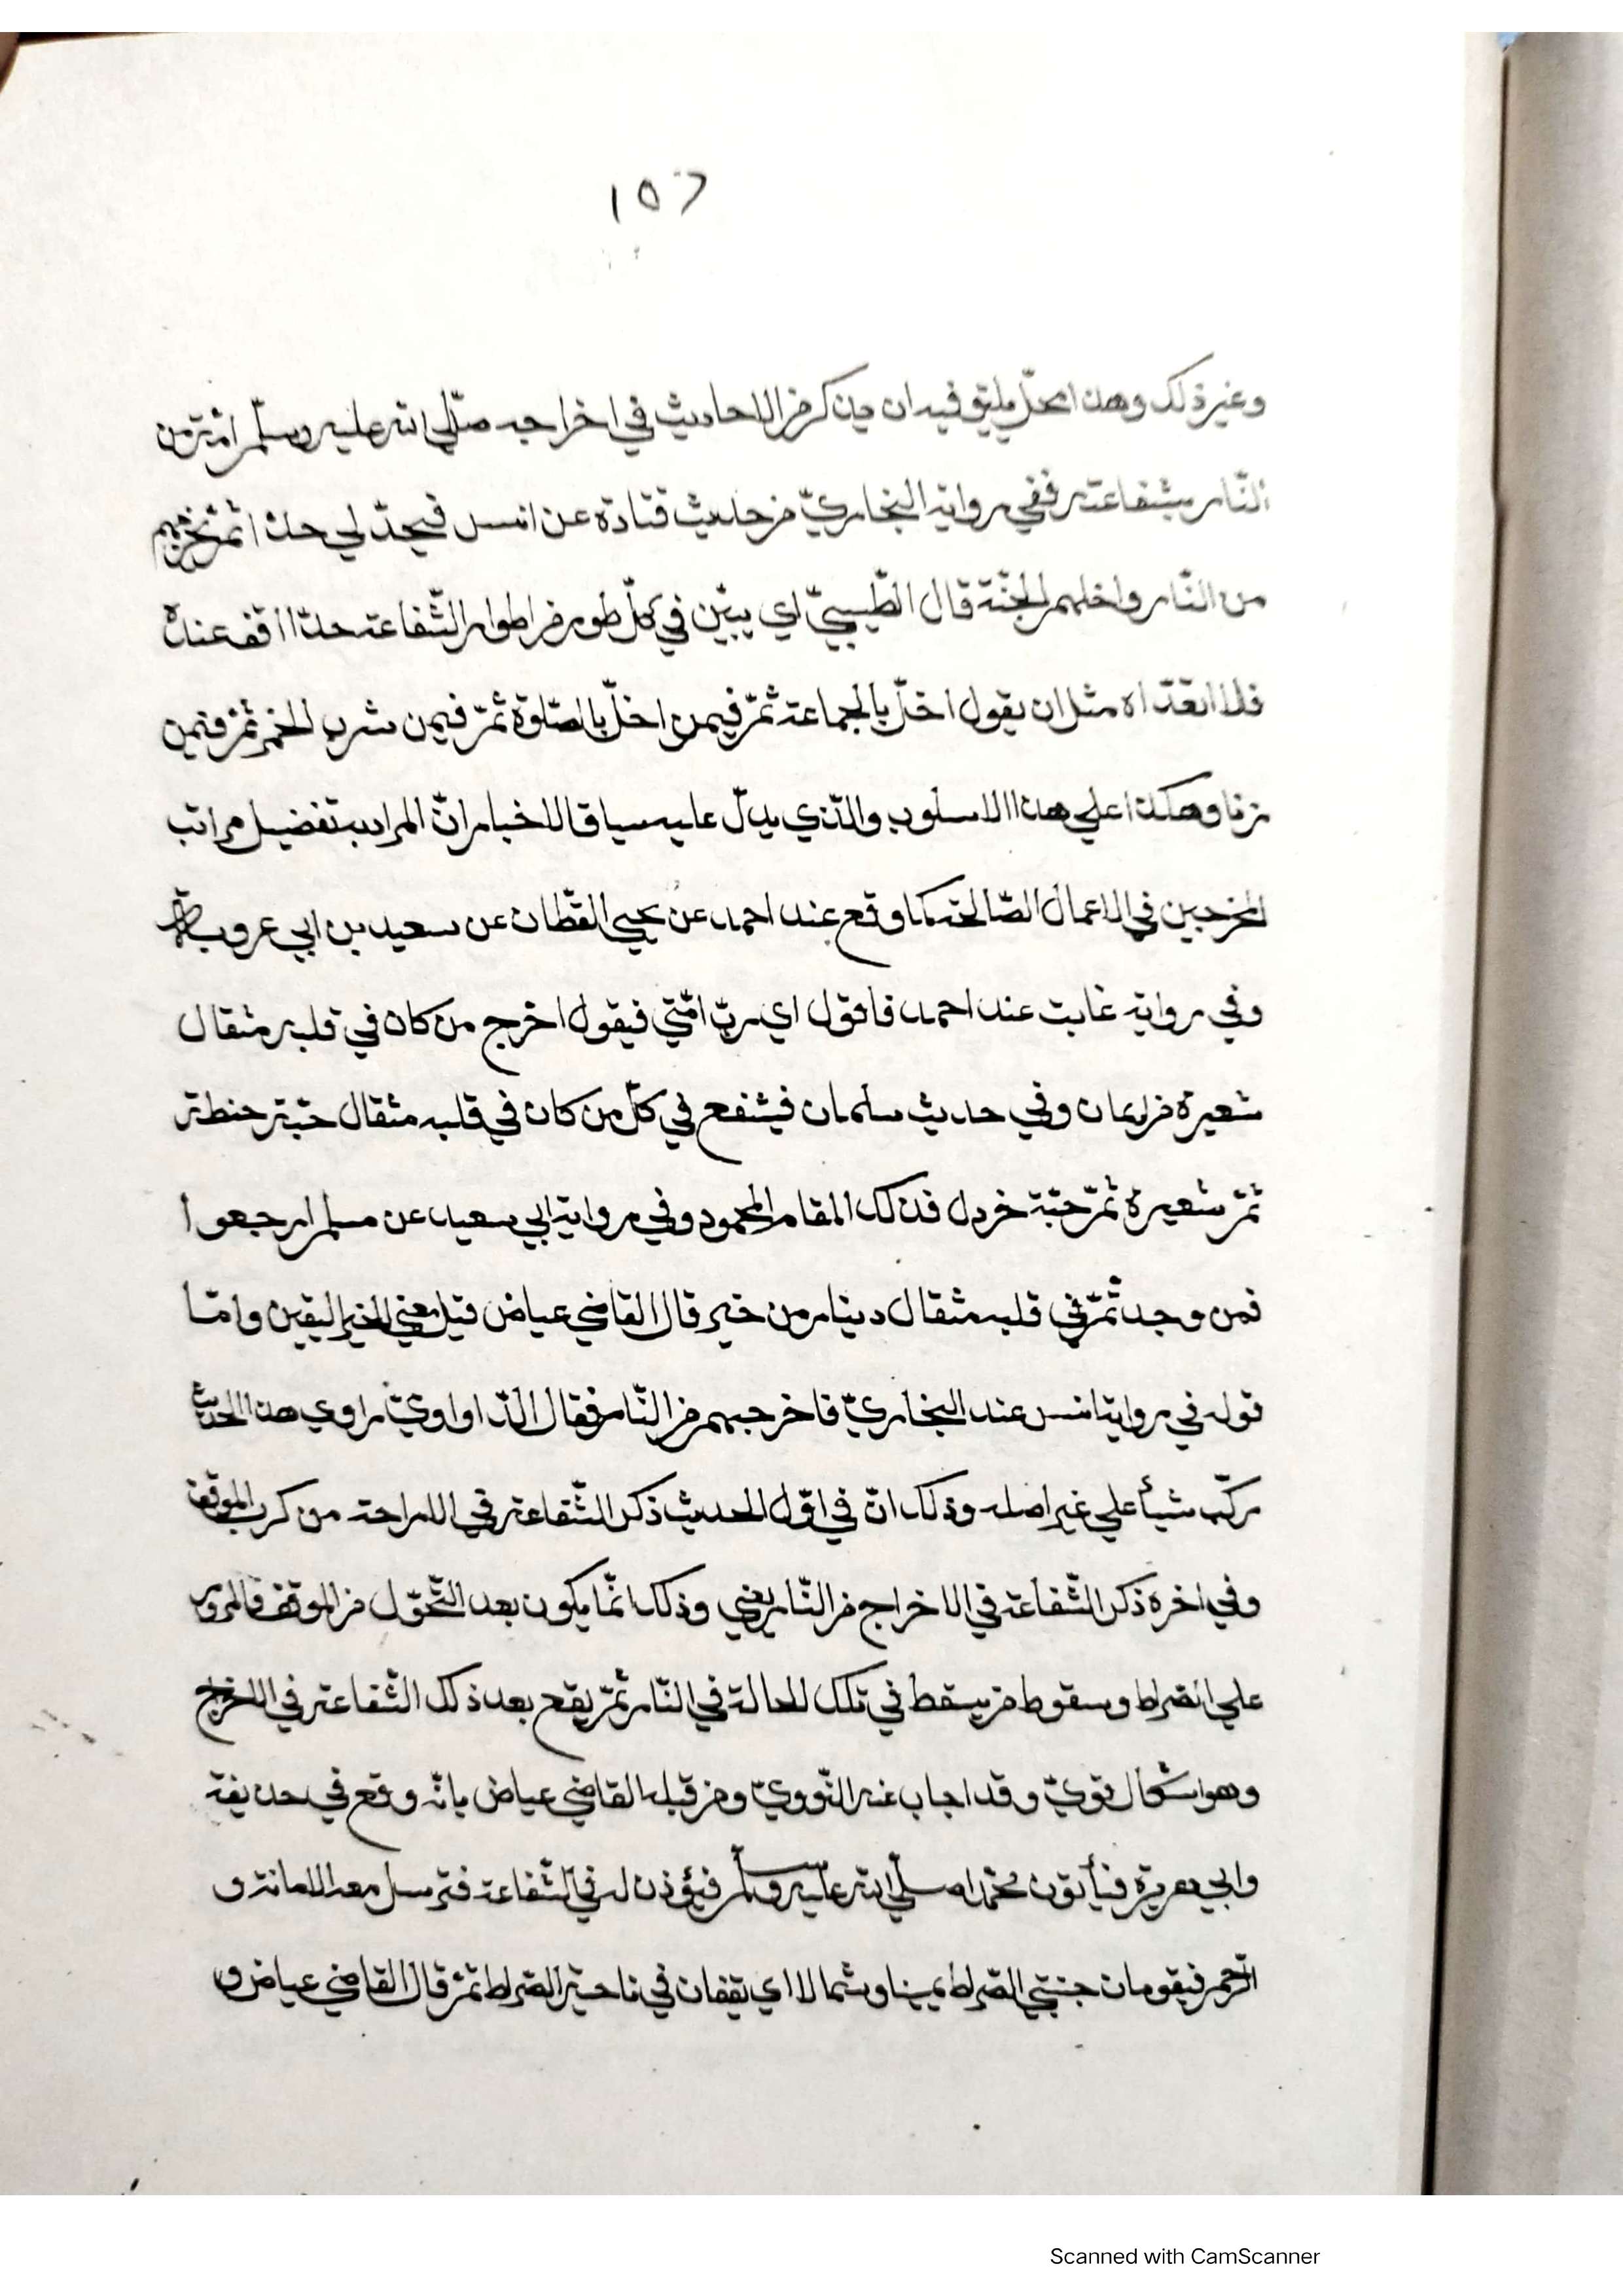 ١٥٢
وغير ذلك وهذا محلّ يليق فيه ان يذكر من الاحاديث في اخراجه صلّي الله عليه وسلّم امّته من
النّار بشفاعته ففي رواية البخاريّ من حديث قتادة عن انس فيحدّ لي حدّا ثمّ نخرجهم
من النّار وادخلهم الجنّة قال الطّيبيّ اي يبيّن في كلّ طور من اطوار الشّفاعة حدّا اقف عنده
فلا اتعدّاه مثل ان يقول اخلّ بالجماعة ثمّ فيمن اخلّ بالصّلوة ثمّ فيمن شرب الخمر ثمّ فيمن
زنا وهكذا علي هذا الاسلوب والّذي يدلّ عليه سياق الاخبار انّ المراد به تفضيل مراتب
المخرجين في الاعمال الصّالحة كما وقع عند احمد عن يحيي القطّان عن سعيد بن ابي عروبة
وفي رواية غابت عند احمد فاقول اي ربّ امّتي فيقول اخرج من كان في قلبه مثقال
شعيرة من ايمان وفي حديث سلمان فيشفع في كلّ من كان في قلبه مثقال حبّة حنطة
ثمّ شعيرة ثمّ حبّة خردل فذلك المقام المحمود وفي رواية ابي سعيد عن مسلم ارجعوا
فمن وجد ثمّ في قلبه مثقال دينار من خير قال القاضي عياض قيل معني الخير اليقين وامّا
قوله في رواية انس عند البخاريّ فاخرجهم من النّار فقال الدّاواوديّ راوي هذا الحديث
ركّب شيأ علي غير اصله وذلك انّ في اوّل الحديث ذكر الشّفاعة في الاراحة من كرب الموقف
وفي اخره ذكر الشّفاعة في الاخراج من النّار يعني وذلك انّما يكون بعد التّحوّل من الموقف فالمرور
علي الصّراط وسقوط من يسقط في تلك الحالة في النّار ثمّ يقع بعد ذلك الشّفاعة في الاخراج
وهو اشكال قويّ وقد اجاب عنه النّوويّ ومن قبله القاضي عياض بانّه وقع في حذيفة
وابي هريرة فيأتون محمّدا صلّي الله عليه وسلّم فيؤذن له في الشّفاعة فترسل معه الامانة و
الرّحم فيقومان جنبتي الصّراط يمينا وشمالا اي يقفان في ناحية الصّراط ثمّ قال القاضي عياض و
Scanned with CamScanner